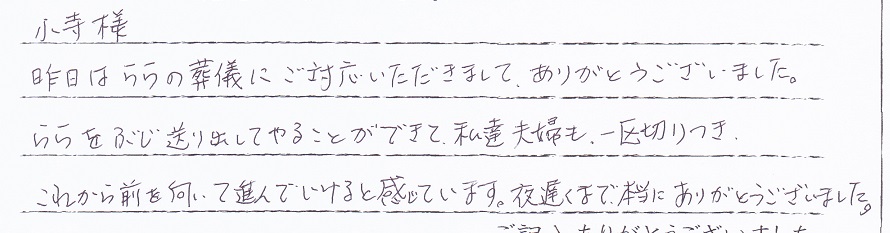 小寺様
昨日はららの葬儀にご対応いただきまして、ありがとうございました。
ららをぶじ送り出してやることができて、私達夫婦も、一区切りつき、
これから前を向いて進んでいけると感じています。夜遅くまで本当にありがとうございました。
ご記入ありがとうございました